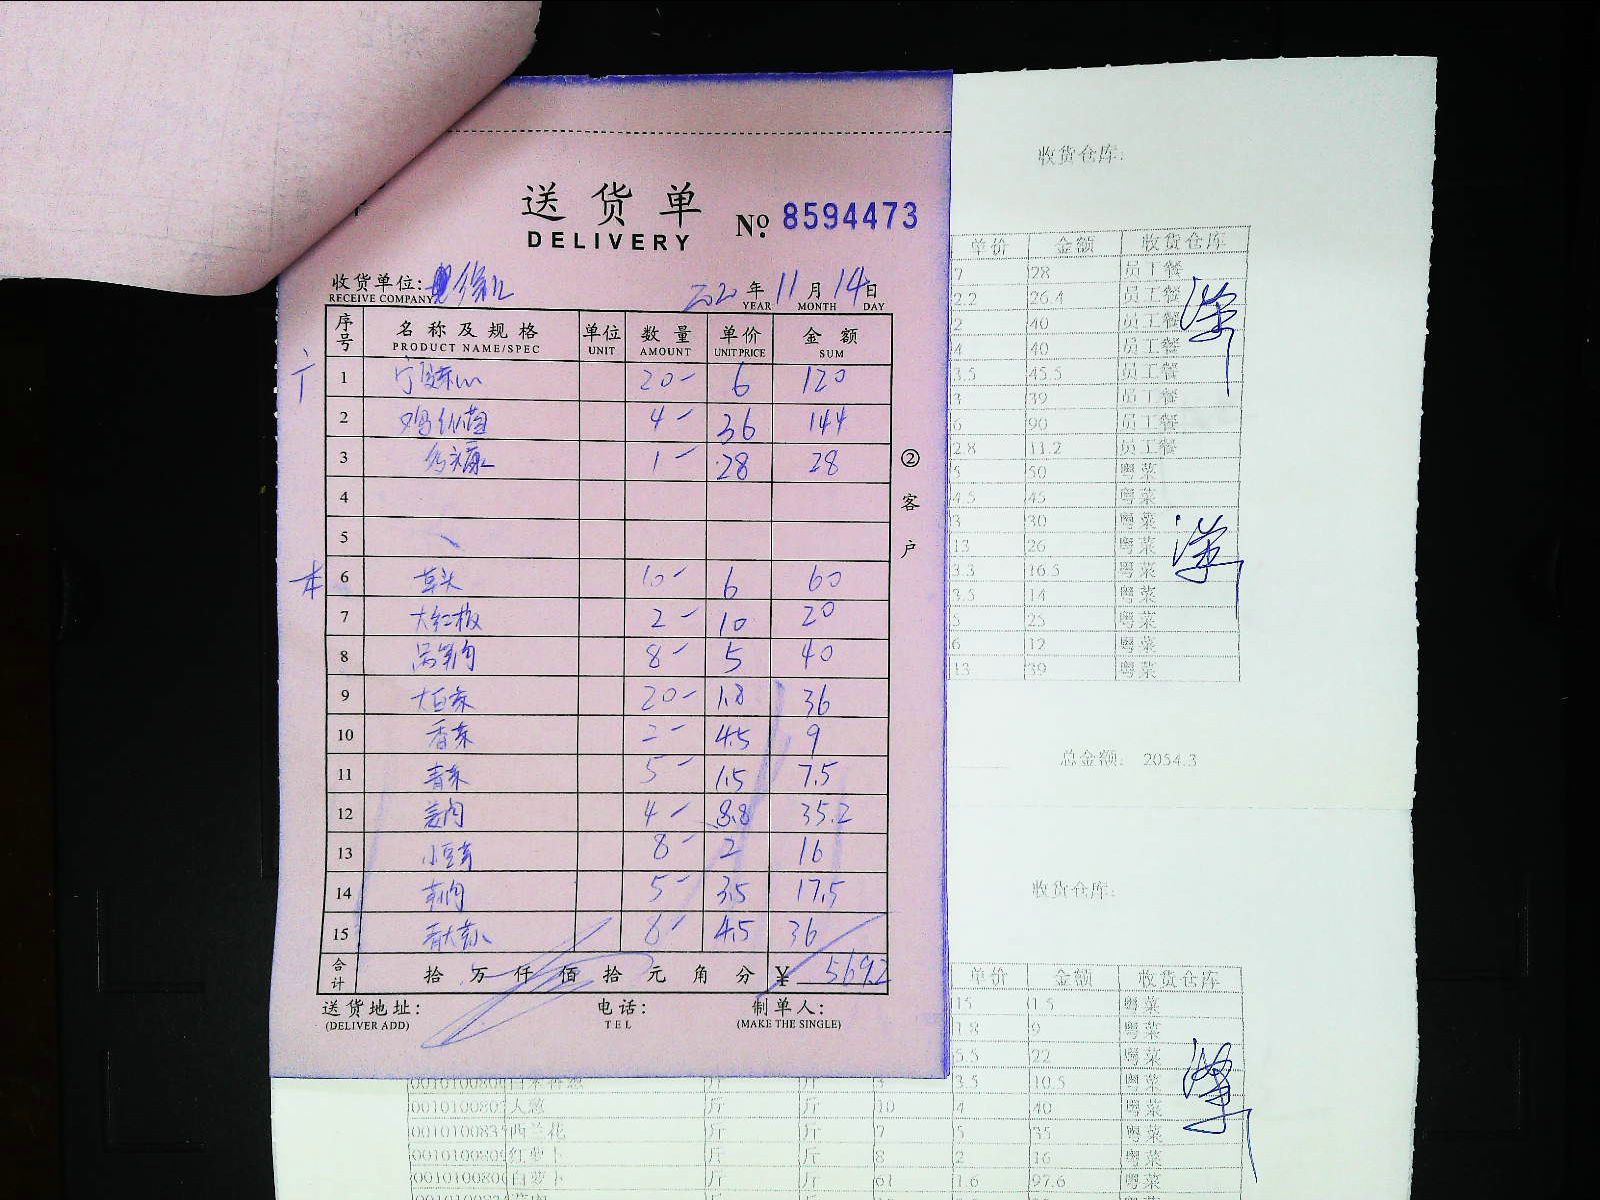 送货单
DELIVERY
No. 8594473
收货单位: 徐汇 2020年11月14日
RECEIVE COMPANY YEAR MONTH DAY
序号 名称及规格 单位 数量 单价 金额
PRODUCT NAME/SPEC UNIT AMOUNT UNIT PRICE SUM
广
1 20- 6 120
2 鸡纵菌 4- 36 144
3 1- 28 28
4
5
本 6 草头 10- 6 60
7 大红椒 2- 10 20
8 8- 5 40
9 大白菜 20- 1.8 36
10 香菜 2- 4.5 9
11 青菜 5- 1.5 7.5
12 姜肉 4- 8.8 35.2
13 小豆芽 8- 2 16
14 5- 3.5 17.5
15 8- 4.5 36
合计 拾万仟佰拾元角分 ¥ 569.2
送货地址: 电话: 制单人:
(DELIVER ADD) TEL (MAKE THE SINGLE)
②客户
收货仓库:
单价 金额 收货仓库
7 28 员工餐
2.2 26.4 员工餐
2 40 员工餐
4 40 员工餐
3.5 45.5 员工餐
3 39 员工餐
6 90 员工餐
2.8 11.2 员工餐
5 50 粤菜
4.5 45 粤菜
3 30 粤菜
13 26 粤菜
3.3 16.5 粤菜
3.5 14 粤菜
5 25 粤菜
6 12 粤菜
13 39 粤菜
总金额: 2054.3
收货仓库:
单价 金额 收货仓库
15 1.5 粤菜
1.8 9 粤菜
5.5 22 粤菜
斤 斤 3 3.5 10.5 粤菜
大葱 斤 斤 10 4 40 粤菜
西兰花 斤 斤 7 5 35 粤菜
红萝卜 斤 斤 8 2 16 粤菜
白萝卜 斤 斤 61 1.6 97.6 粤菜